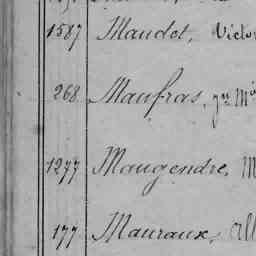 1587 Maudet, Victo
268 Maufras,
1277 Maugendre, M
177 Mauraux,